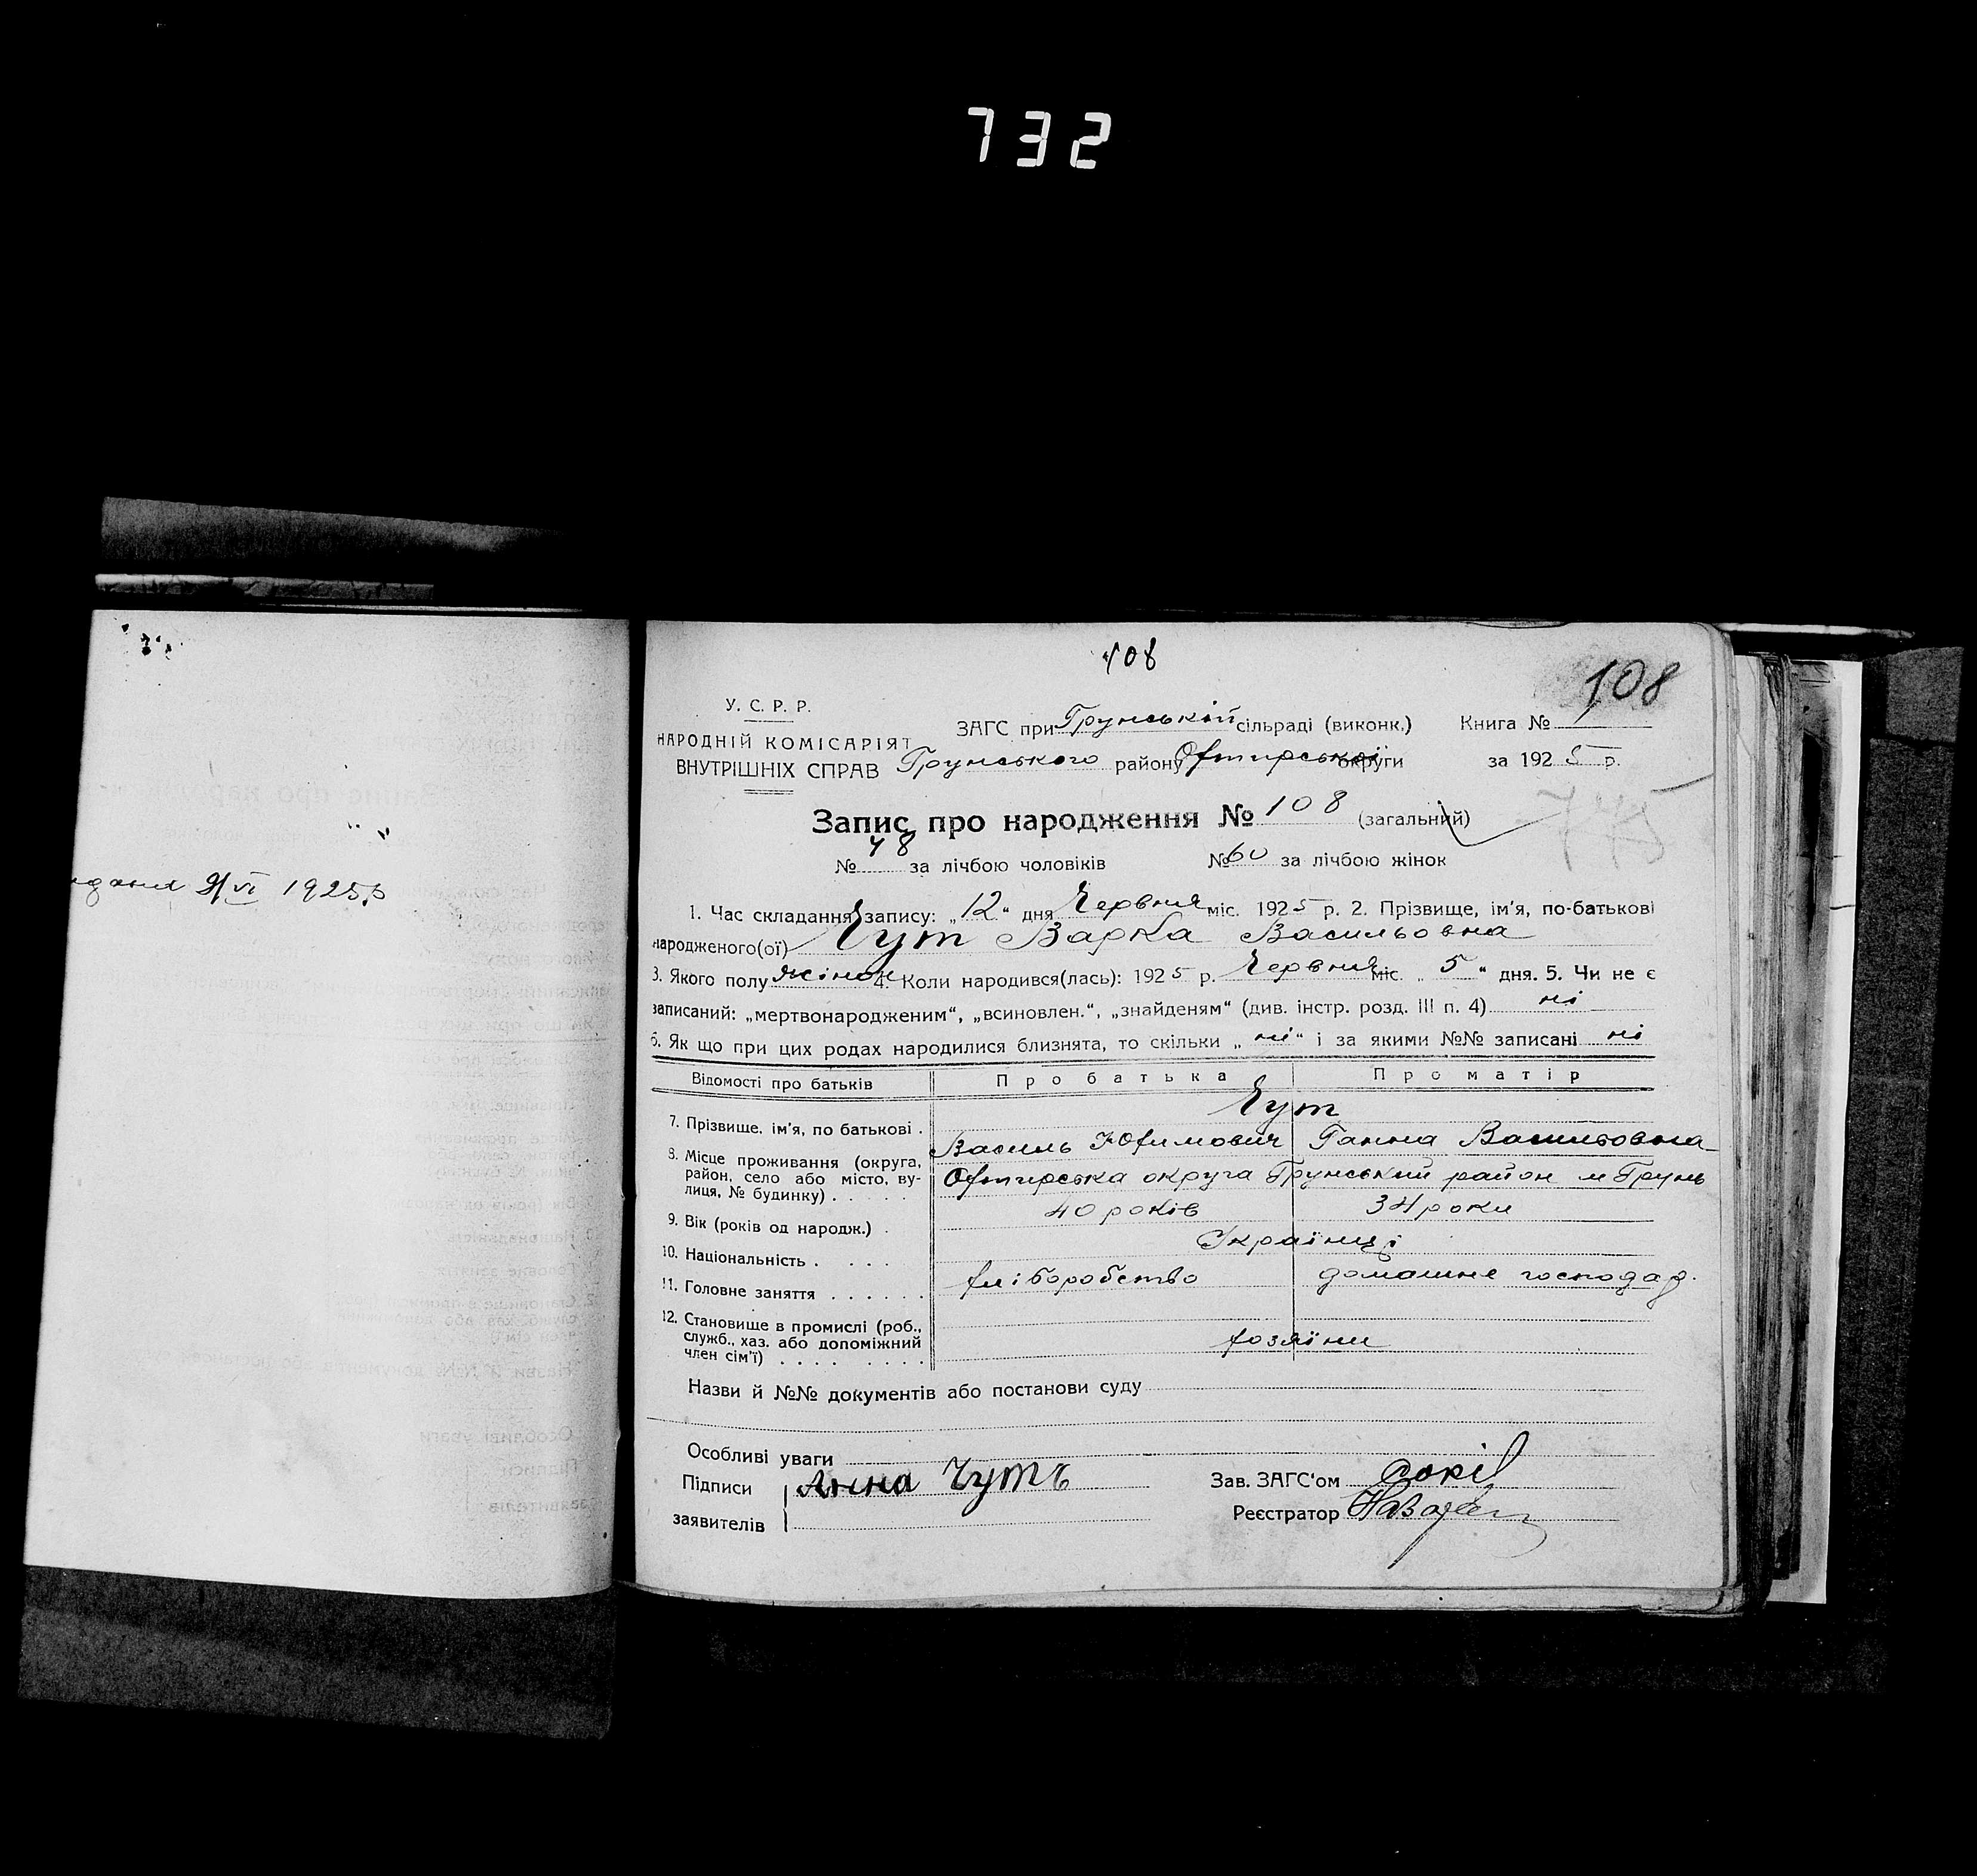 732
108
108
У. С. Р. Р.
НАРОДНІЙ КОМІСАРІЯТ
ВНУТРІШНІХ СПРАВ
ЗАГС при Грунській сільраді (виконк.) Книга №
Грунського району Охтирської округи за 1925 р.
Запис про народження № 108 (загальний)
№ 48 за лічбою чоловіків № 60 за лічбою жінок
1925р
1. Час складання запису: „12" дня Червня міс. 1925 р. 2. Прізвище, ім'я, по-батькові
народженого(ої) Чут Варка Васильовна
3. Якого полу жінок 4. Коли народився(лась): 1925 р. Червня міс. „5" дня. 5. Чи не є
записаний: „мертвонародженим", „всиновлен.", „знайденям" (див. інстр. розд. III п. 4) ні
6. Як що при цих родах народилися близнята, то скільки „ні" і за якими №№ записані ні
Відомості про батьків Про батька Про матір
Чут
7. Прізвище, ім'я, по батькові . Василь Юхимович Ганна Васильовна
8. Місце проживання (округа, район, село або місто, вулиця, № будинку) . . . . . Охтирська округа Грунський район м Грунь
9. Вік (років од народж.) . 40 років 34 роки
10. Національність . . . . Українці
11. Головне заняття . . . . . . хліборобство домашнє господар.
12. Становище в промислі (роб.,
служб., хаз. або допоміжний
член сім'ї) . . . . . . . . хозяїни
Назви й №№ документів або постанови суду
Особливі уваги
Підписи Анна Чутъ Зав. ЗАГС'ом Сокіл
заявителів Реєстратор